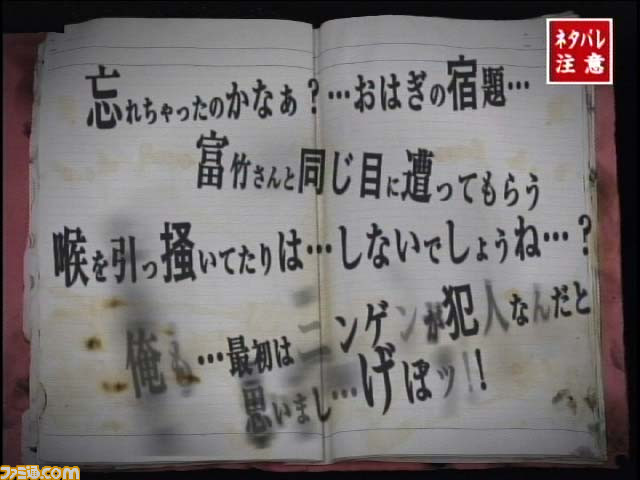 ネタバレ
注意
忘れちゃったのかなぁ？…おはぎの宿題…
富竹さんと同じ目に遭ってもらう
喉を引っ掻いてたりは…しないでしょうね…？
俺も…最初はニンゲンが犯人なんだと
思いまし…げほッ!!
ファミ通.com